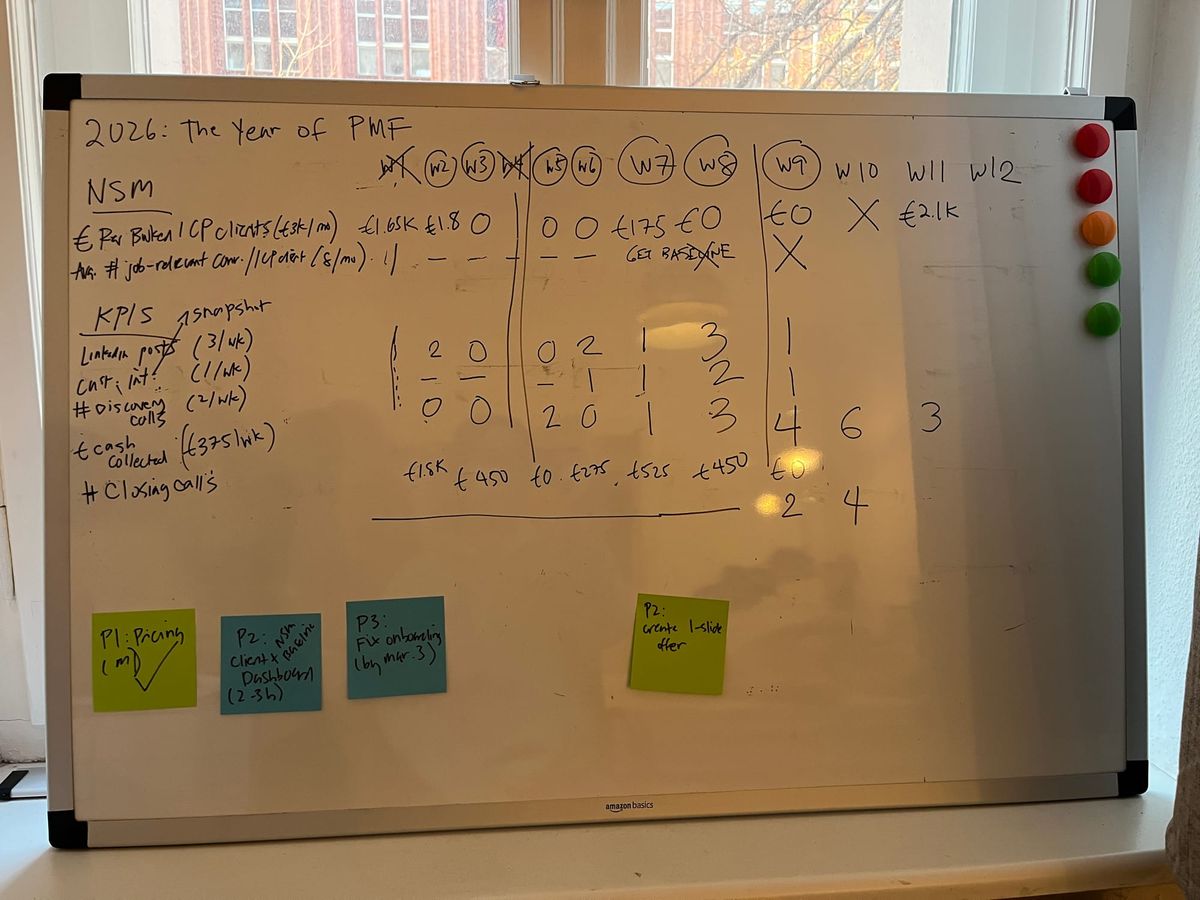 2026: The Year of PMF
W1 W2 W3 W4 W5 W6 W7 W8 W9 W10 W11 W12
NSM
€ Rev Booked / ICP clients (€3k/mo) €1.65K €1.8 0 0 0 €175 €0 €0 X €2.1K
Avg. # job-relevant conv. / ICP client (8/mo) — — — — — GET BASELINE X
KPIs snapshot
LinkedIn posts (3/wk) 2 0 0 2 1 3 1
Cust. int. (1/wk) — — — 1 1 2 1
# Discovery calls (2/wk) 0 0 2 0 1 3 4 6 3
€ cash collected (€375/wk) €1.8K €450 €0 €275 €525 €450 €0
# Closing calls 2 4
P1: Pricing
(m)
P2: NSM
Client x Baseline
Dashboard
(2-3h)
P3:
Fix onboarding
(by mar. 3)
P2:
create 1-slide
offer
amazon basics